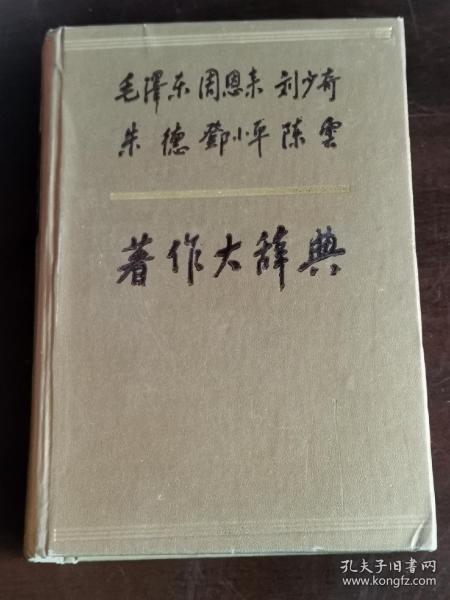 毛澤东周恩来刘少奇
朱德鄧小平陈雲
著作大辞典
孔夫子旧书网
www.kongfz.com